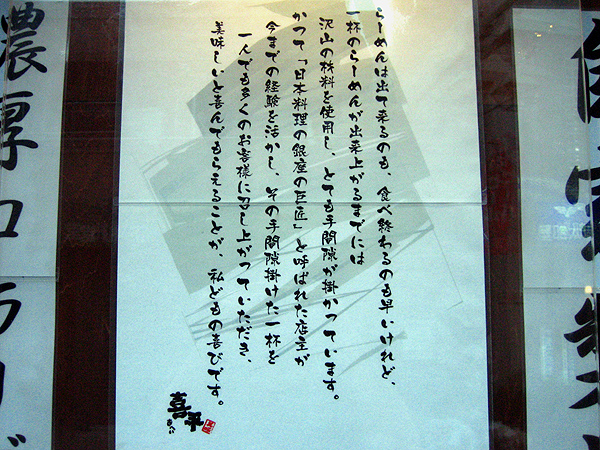 らーめんは出て来るのも、食べ終わるのも早いけれど、
一杯のらーめんが出来上がるまでには
沢山の材料を使用し、とても手間隙が掛かっています。
かつて「日本料理の銀座の巨匠」と呼ばれた店主が
今までの経験を活かし、その手間隙掛けた一杯を
一人でも多くのお客様に召し上がっていただき、
美味しいと喜んでもらえることが、私どもの喜びです。
喜平
濃厚